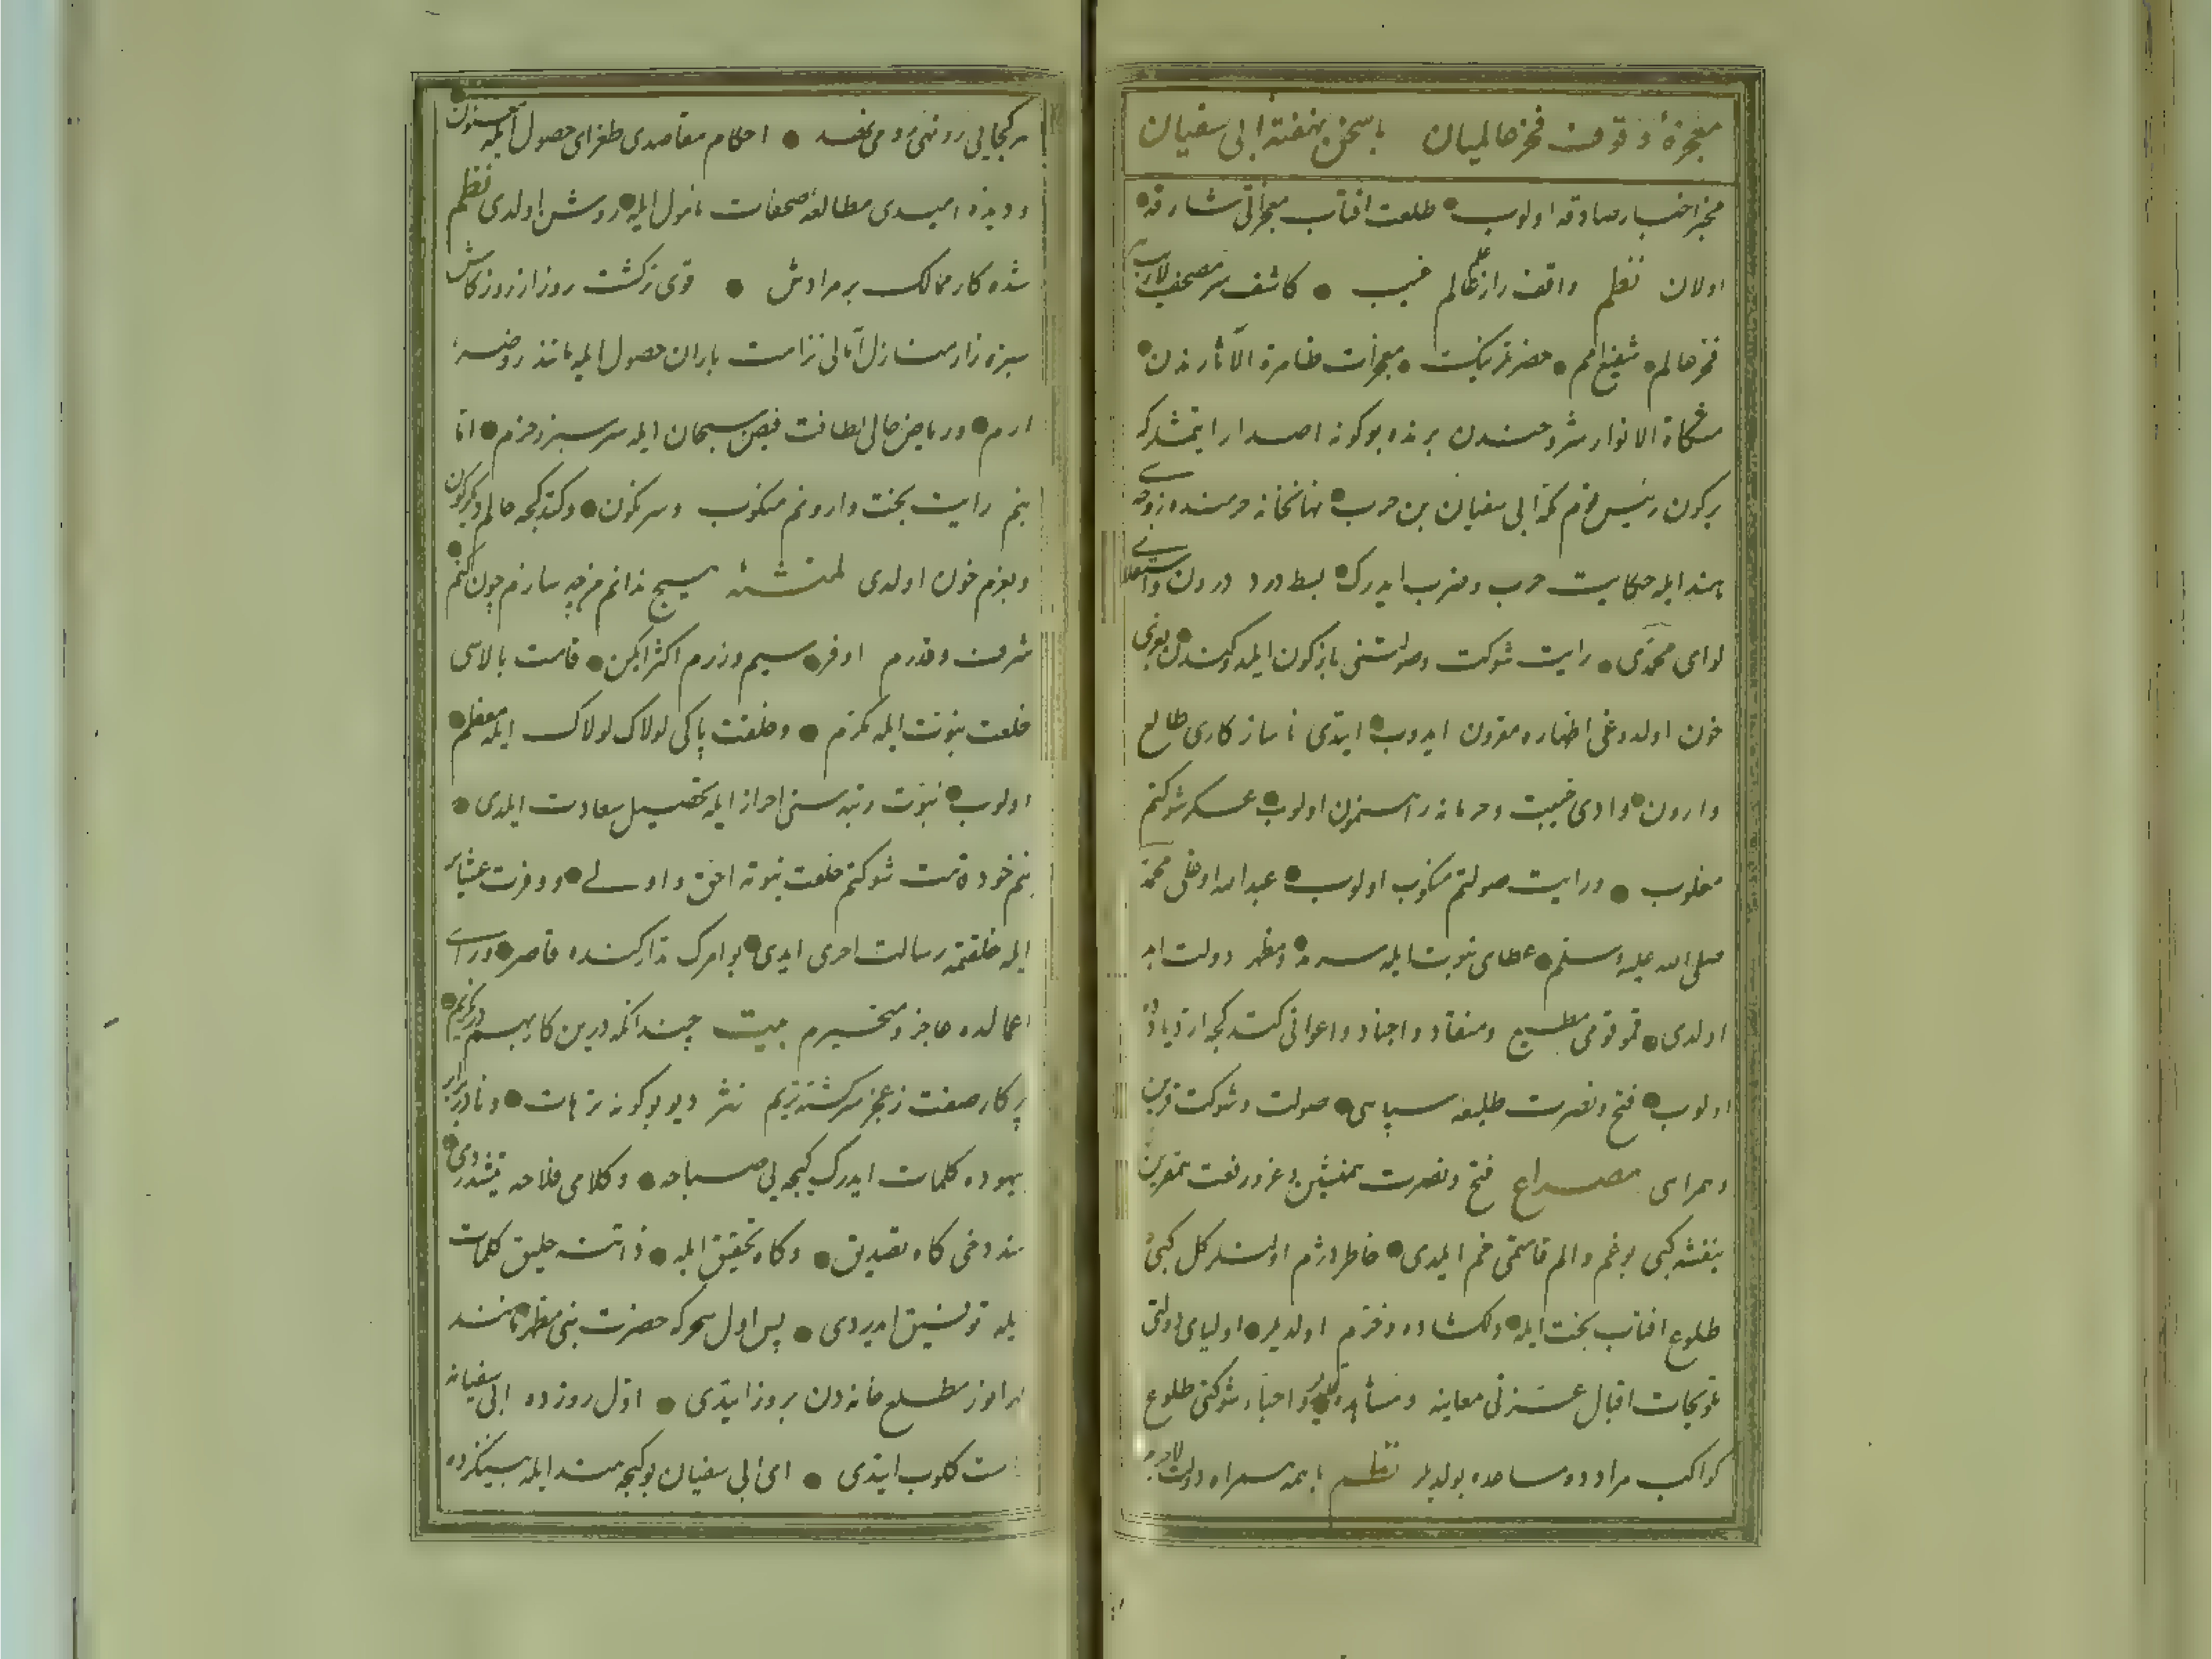 معجزۀ وقوف فخر عالمیان باسخن نهفتۀ ابی سفیان
مخبر اخبار صادقه اولوب طلعت افتاب معجزاتی شارقه
اولان نظم واقف راز عالم غیب کاشف سر مصحف لاریب
فخر عالم شفیع امم حضرتلرینک معجزات ظاهرة الآثارندن
مشکاة الانوار مشروحسندن برنده بو کونه اصدار ایتمشدرکه
برکون رئیس قوم مکه ابی سفیان بن حرب نهانخانه حرمنده زوجه سی
هند ایله حکایت حرب وضرب ایدرک بسط درد درون واستعلای
لوای محمدی رایت شوکت وصولتنی بازکون ایلدوکندن بغری
خون اولدوغی اظهاره مقرون ایدوب ایتدی ناسازکاری طالع
وارون وادی خیبت وحرمانه راهنمون اولوب عسکر شوکتم
مغلوب ورایت صولتم منکوب اولوب عبدالله اوغلی محمد
صلی الله علیه وسلم عطای نبوت ایله ومظهر دولت ابد
اولدی قوم مطیع ومنقاد واجناد واعوانی کتدکجه ازدیاده
اولوب فتح ونصرت طلیعه سپاهی صولت وشوکت قرین
وهمراهی مصراع فتح ونصرت همنشین وعز ورفعت همقرین
بنفشه کبی بو غم والم قامتمی خم ایلدی خاطر درهم اولنلر کل کبی
طلوع افتاب بخت ایله دلکشاده وخرم اولدیلر اولیای دولتی
اقبال عزتنی معاینه ومشاهده واحبار شوکتی طلوع
کواکب مراد ده مساعده بولدیلر نظم باهمه همراه دولت
هر کجا یی رو نهی رو می نهد احکام مقاصدی طغرای حصول ایله
ودیده امیدی مطالعۀ صحفات مأمول ایله روشن اولدی نظم
شده کار ممالک بر مرادش قوی تر کشت روز از روز کارش
سبزه زار منازل آمالی نزاهت باران حصول ایله مانند روضۀ
ارم وریاض حالی لطافت فیض سبحان ایله سرسبز وخرم اما
بنم رایت بخت وارونم منکوب وسرنکون وکتدکجه حالم دیکرکون
وبغرم خون اولدی لمنشئه هیچ ندانم من چه سازم چون کنم
شرف وقدرم اوفر سیم وزرم اکثر ایکن قامت بالاسی
خلعت نبوت ایله مکرم وخلقت پاکی لولاک لولاک ایله معظم
اولوب نبوت رتبه سنی احراز ایله تحصیل سعادت ایلدی
بنم خود قامت شوکتم خلعت نبوته احق واولی ووفرت عشایر
ایله خلقتم رسالت احری ایدی بو امرک تدارکنده قاصر ورای
اعمالده عاجز ومتحیرم بیت چندانکه درین کار بهم درنکریم
پرکار صفت ز عجز سرکشته تریم نثر دیو بو کونه ترهات
بیهوده کلمات ایدرک کیجه یی صباحه وکلامی فلاحه یتشدردی
هند دخی کاه تصدیق وکاه تحقیق ایله کلمات
یله توفیق ایدردی پس اول سحرکه حضرت نبی مظهر مانند
مهر انور مطلع خانه دن بروز ایتدی اول روزده ابی سفیانه
کلوب ایتدی ای ابی سفیان بو کیجه هند ایله